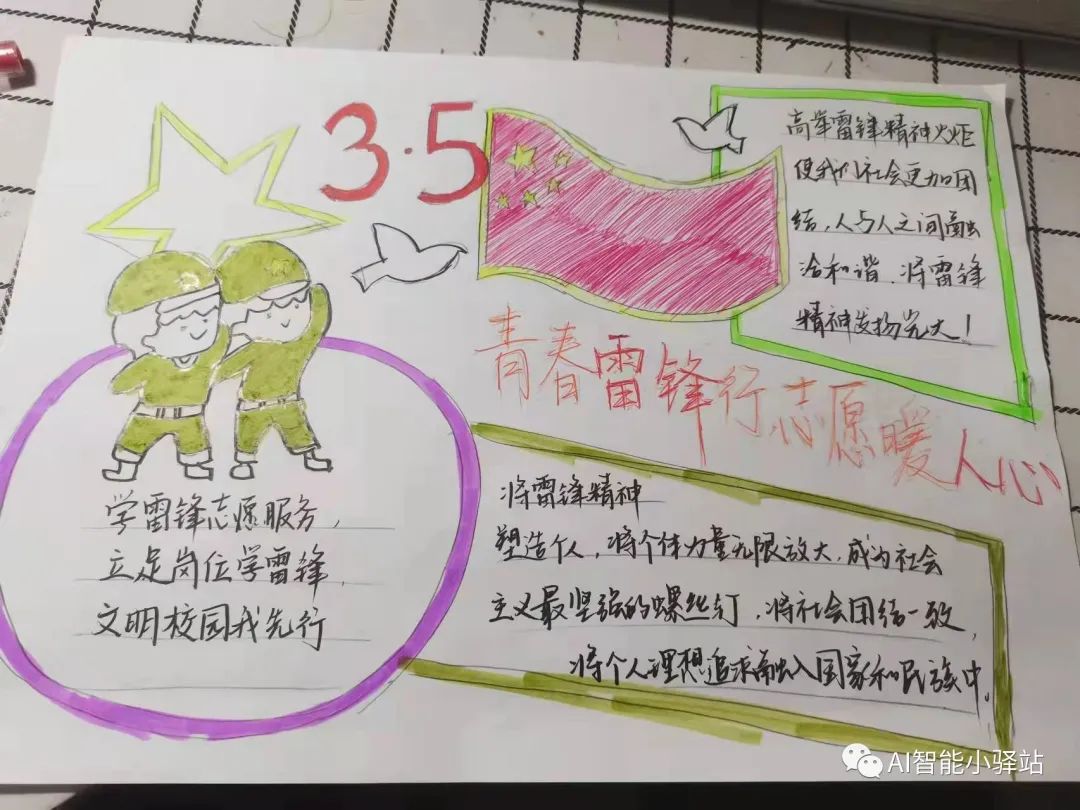 3.5
高举雷锋精神火炬
使我们社会更加团
结，人与人之间融
洽和谐．将雷锋
精神发扬光大！
青春雷锋行，志愿暖人心
学雷锋志愿服务，
立足岗位学雷锋，
文明校园我先行
将雷锋精神
塑造个人，将个体力量无限放大，成为社会
主义最坚强的螺丝钉，将社会团结一致，
将个人理想追求融入国家和民族中。
AI智能小驿站